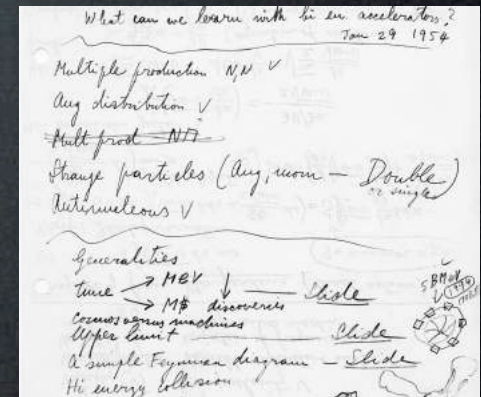 What can we learn with hi en. accelerators?
Jan 29 1954
Multiple production N,N V
Ang distribution V
Mult prod Nπ
Strange particles (Ang, mom – Double)
or single
Antinucleous V
Generalities
time → MeV ↓ — Slide
→ M$ discoveries
Cosmos versus machines
Upper limit — Slide
A simple Feynman diagram – Slide
Hi energy collision
1994